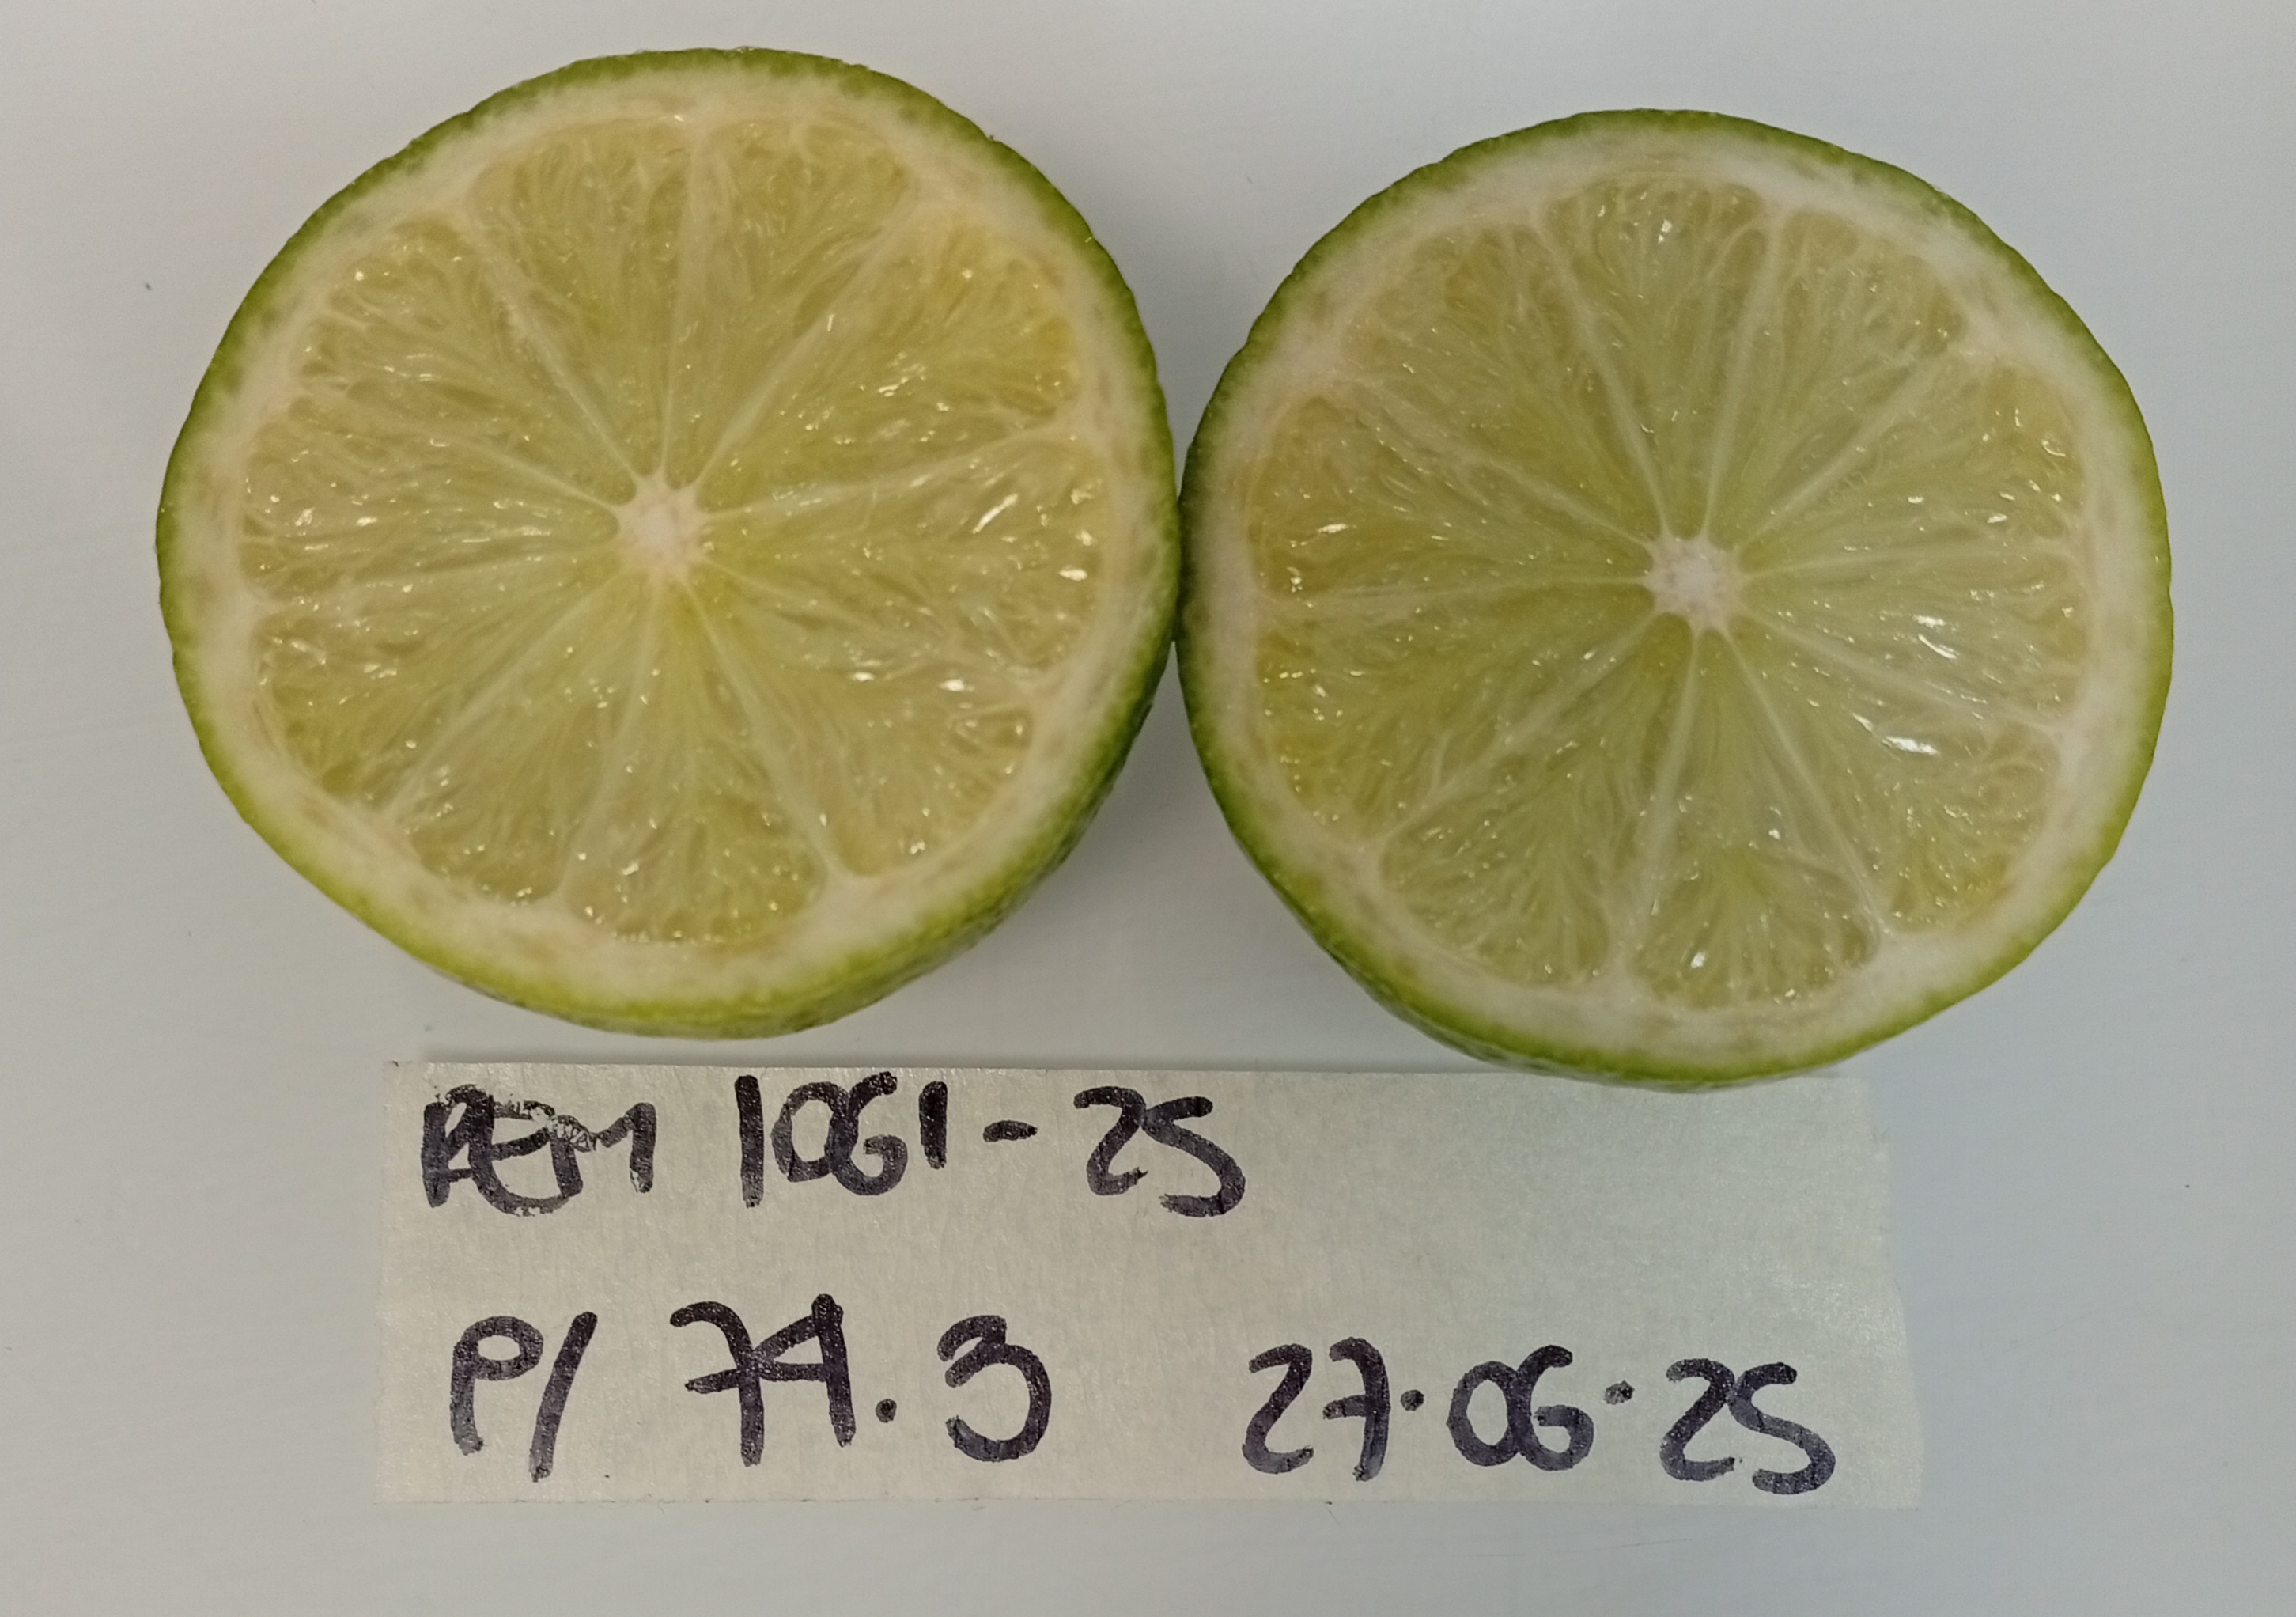 REM 1061-25
P/ 74.3 27.06.25